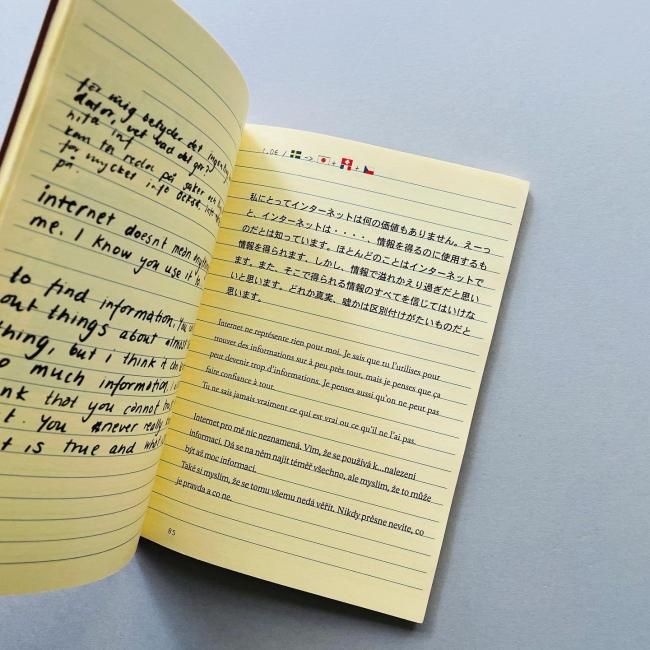 för mig betyder det ingenting
dator, vet vad det gör?
hitta inf
kan ta reda på saker och
för mycket info också, inte
på.
internet doesn't mean anything
me. I know you use it to
to find information. You
out things about almost
thing, but i think it can
o much information, i
nk that you cannot
t. You never really
t is true and what
1.06 / -> + +
私にとってインターネットは何の価値もありません。えーっ
と、インターネットは・・・・、情報を得るのに使用するも
のだとは知っています。ほとんどのことはインターネットで
情報を得られます。しかし、情報で溢れかえり過ぎだと思い
ます。また、そこで得られる情報のすべてを信じてはいけな
いと思います。どれか真実、嘘かは区別付けがたいものだと
思います。
Internet ne représente rien pour moi. Je sais que tu l'utilises pour
trouver des informations sur à peu près tout, mais je penses que ça
peut devenir trop d'informations. Je penses aussi qu'on ne peut pas
faire confiance à tout.
Tu ne sais jamais vraiment ce qui est vrai ou ce qu'il ne l'ai pas.
Internet pro mě nic neznamená. Vím, že se používá k...nalezení
informací. Dá se na něm najít téměř všechno, ale myslím, že to může
být až moc informací.
Také si myslím, že se tomu všemu nedá věřit. Nikdy přesne nevíte, co
je pravda a co ne.
85